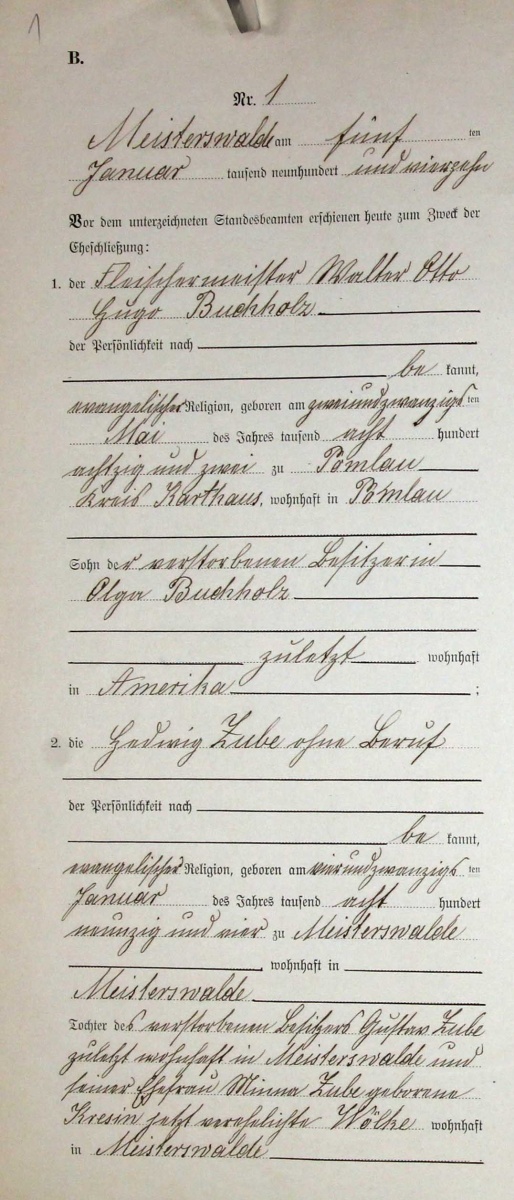 1
B.
Nr. 1
Meisterswalde am fünf ten
Januar tausend neunhundert und vierzehn
Vor dem unterzeichneten Standesbeamten erschienen heute zum Zweck der
Eheschließung:
1. der Fleischermeister Walter Otto
Hugo Buchholz
der Persönlichkeit nach
be kannt,
evangelischer Religion, geboren am zweiundzwanzigs ten
Mai des Jahres tausend acht hundert
achtzig und zwei zu Pomlau
Kreis Karthaus, wohnhaft in Pomlau
Sohn der verstorbenen Besitzerin
Olga Buchholz
zuletzt wohnhaft
in Amerika ;
2. die Hedwig Zube ohne Beruf
der Persönlichkeit nach
be kannt,
evangelischer Religion, geboren am vierundzwanzigs ten
Januar des Jahres tausend acht hundert
neunzig und vier zu Meisterswalde
, wohnhaft in
Meisterswalde
Tochter des verstorbenen Besitzers Gustav Zube
zuletzt wohnhaft in Meisterswalde und
seiner Ehefrau Minna Zube geborene
Kresin jetzt verehelichte Wölke wohnhaft
in Meisterswalde